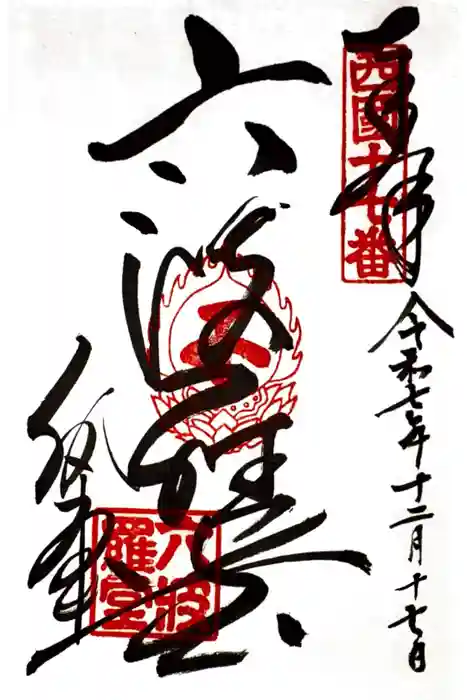 奉拝
西國十七番
令和七年十二月十七日
六波羅堂
六波羅堂